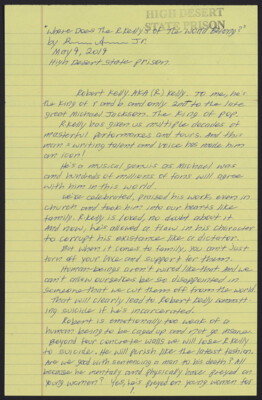 HIGH DESERT
STATE PRISON
"Where Does The R. Kelly's of The World Belong?"
by Jr.
May 9, 2019
High Desert State Prison
Robert Kelly AKA (R) Kelly. To me, he's
the King of R and B and only 2nd to the late
great Michael Jackson. The King of Pop.
R. Kelly has given us multiple decades of
masterful performances and tours. And this
man's writing talent and voice has made him
an icon!
He's a musical genius as Michael was
and hundreds of millions of fans will agree
with him in this world.
We've celebrated, praised his works even in
church and took him into our hearts like
family. R. Kelly is loved, no doubt about it.
And now, he's a flaw in his character
to corrupt his existence like a dictator.
But when it comes to family, you can't just
turn off your love and support for them.
Human beings aren't wired like that. And we
can't allow ourselves to be so disappointed in
someone that we cut them off from the world.
That will clearly lead to Robert Kelly committ-
ing suicide if he's incarcerated.
Robert is emotionally too weak of a
human being to be caged up and not go
beyond four concrete walls we will lose R. Kelly
to suicide. He will perish like the latest fashion.
Are we glad with sentencing a man to his death? All
because he mentally and physically have preyed on
young women? Yes, he's preyed on young women for
1.